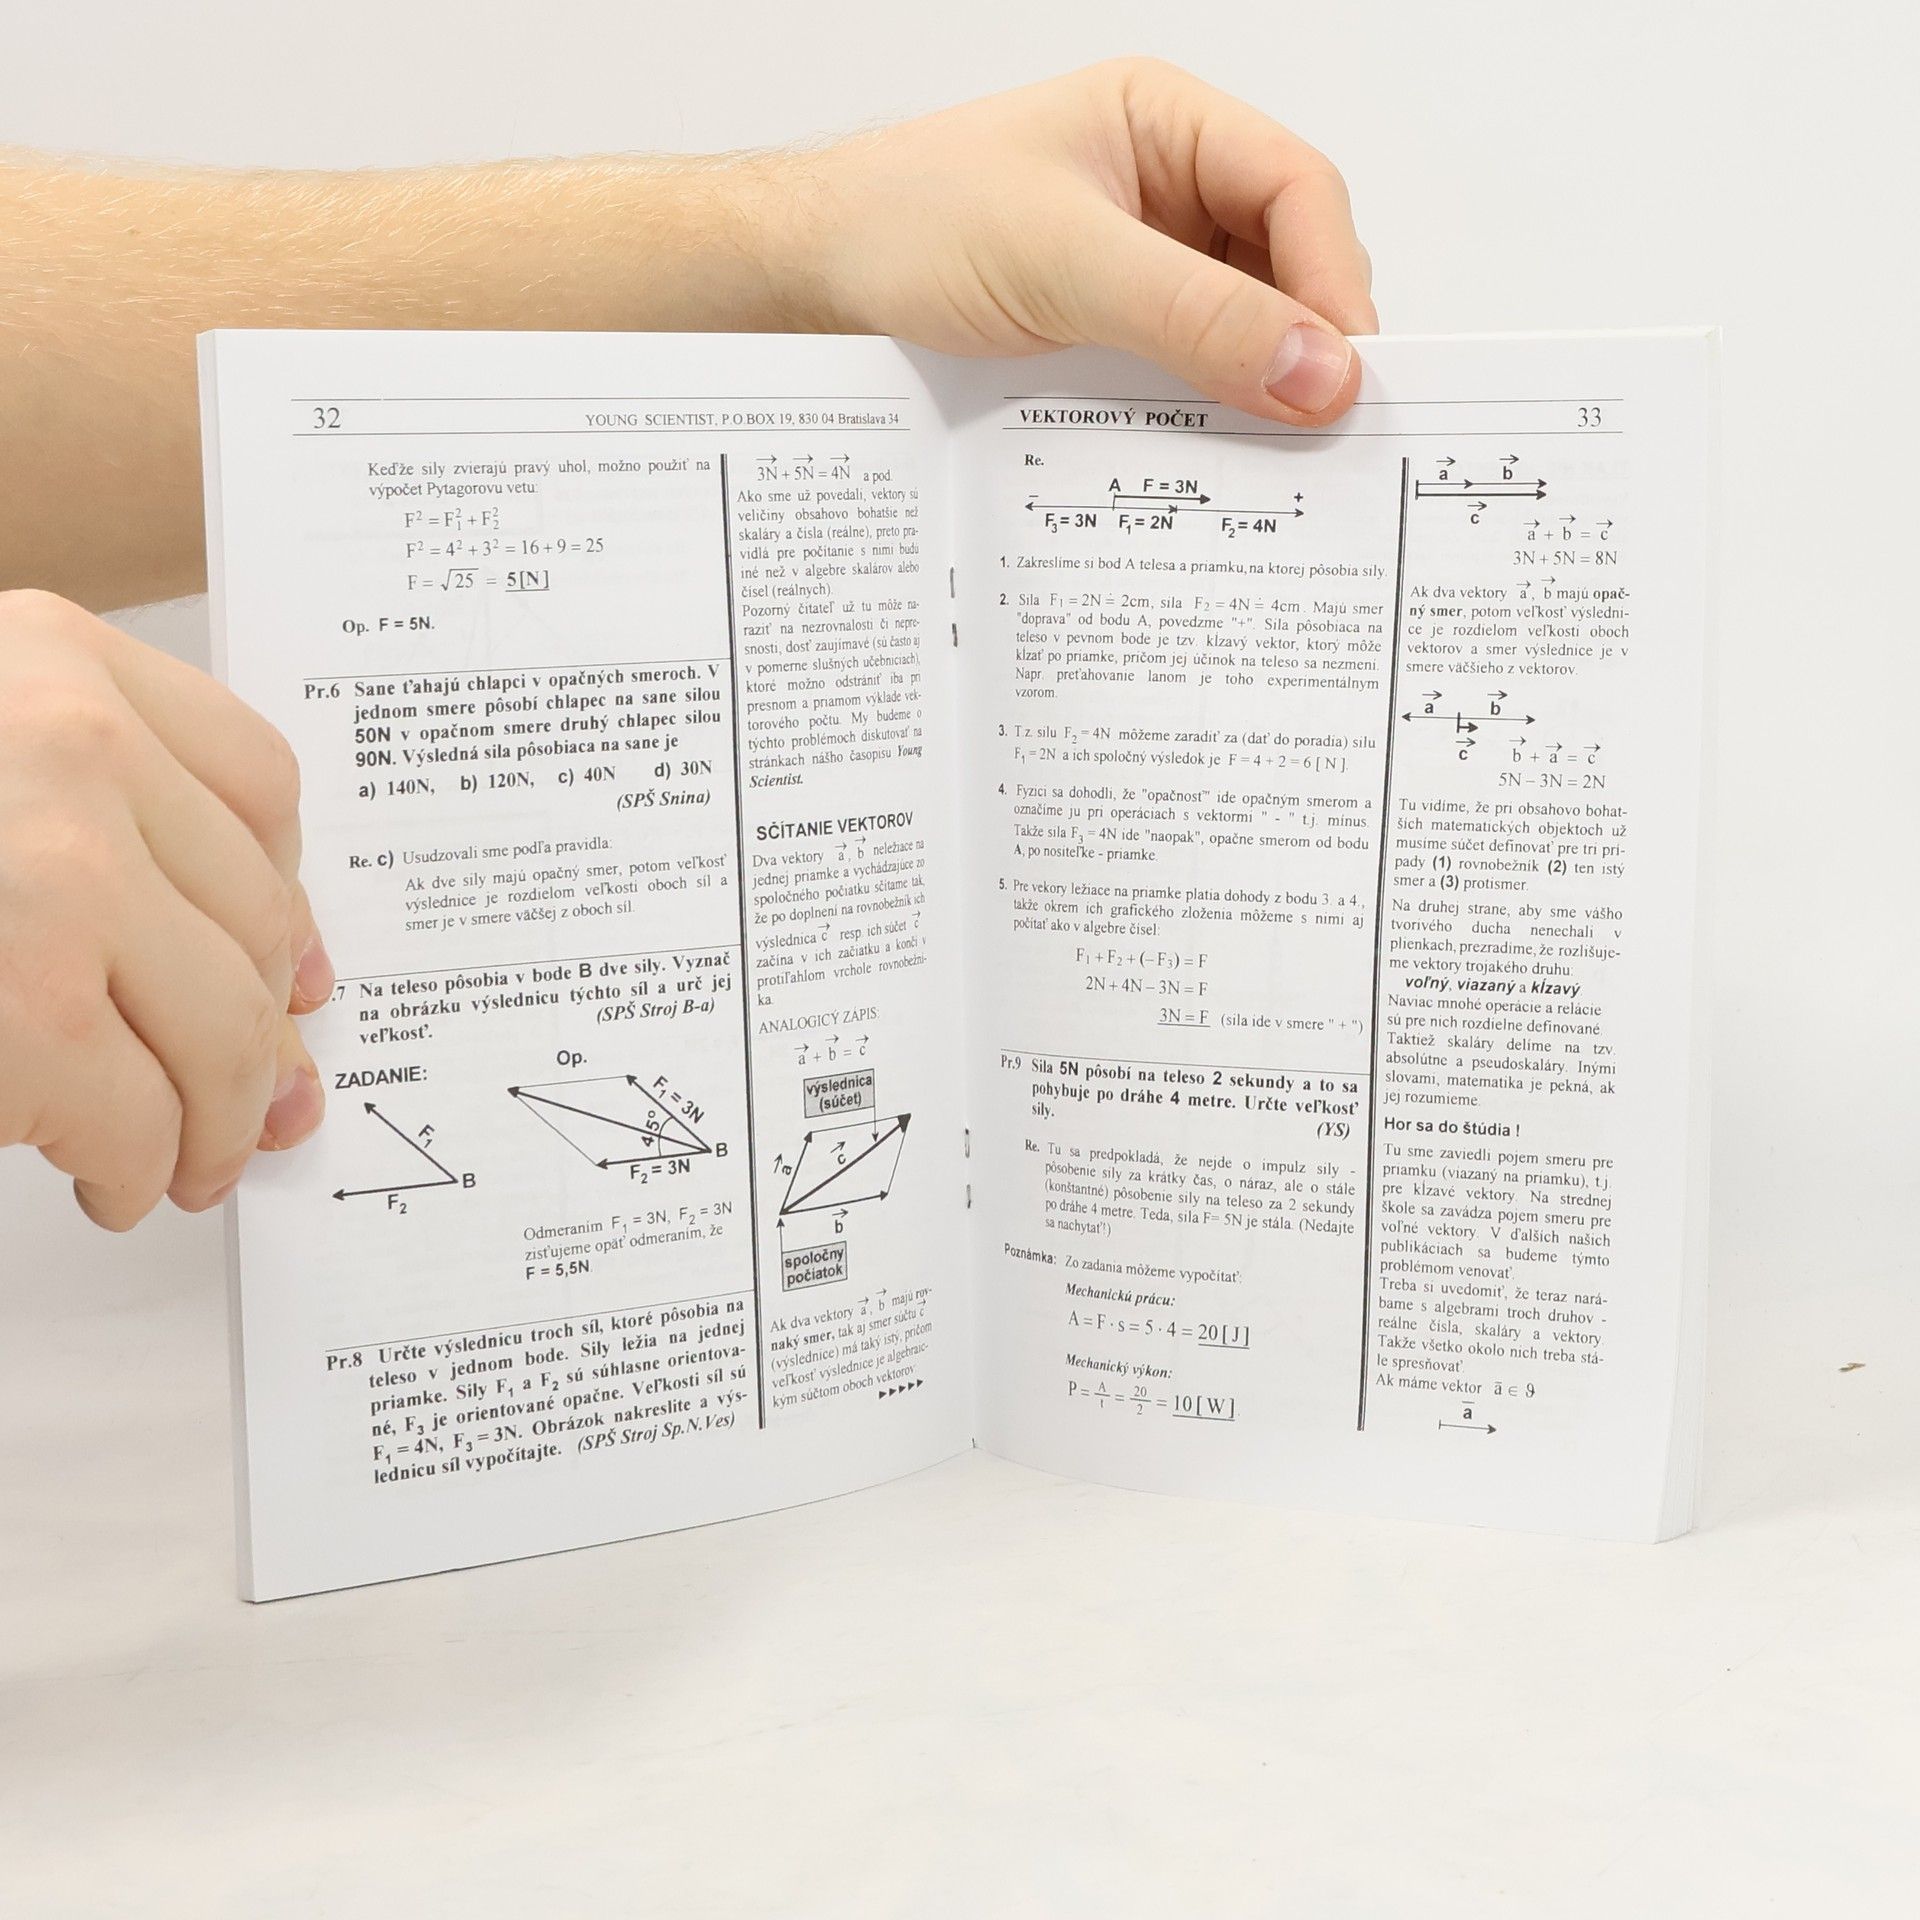 32
YOUNG SCIENTIST, P.O.BOX 19, 830 04 Bratislava 34
Keďže sily zvierajú pravý uhol, možno použiť na
výpočet Pytagorovu vetu:
F² = F₁² + F₂²
F² = 4² + 3² = 16 + 9 = 25
F = √25 = 5[N]
Op. F = 5N.
Pr.6 Sane ťahajú chlapci v opačných smeroch. V
jednom smere pôsobí chlapec na sane silou
50N v opačnom smere druhý chlapec silou
90N. Výsledná sila pôsobiaca na sane je
a) 140N, b) 120N, c) 40N d) 30N
(SPŠ Snina)
Re. c) Usudzovali sme podľa pravidla:
Ak dve sily majú opačný smer, potom veľkosť
výslednice je rozdielom veľkosti oboch síl a
smer je v smere väčšej z oboch síl.
.7 Na teleso pôsobia v bode B dve sily. Vyznač
na obrázku výslednicu týchto síl a urč jej
veľkosť. (SPŠ Stroj B-a)
ZADANIE:
F₁
B
F₂
Op.
F₁ = 3N
45°
B
F₂ = 3N
Odmeraním F₁ = 3N, F₂ = 3N
zisťujeme opäť odmeraním, že
F = 5,5N.
Pr.8 Určte výslednicu troch síl, ktoré pôsobia na
teleso v jednom bode. Sily ležia na jednej
priamke. Sily F₁ a F₂ sú súhlasne orientova-
né, F₃ je orientované opačne. Veľkosti síl sú
F₁ = 4N, F₃ = 3N. Obrázok nakreslite a výs-
lednicu síl vypočítajte. (SPŠ Stroj Sp.N.Ves)
3N + 5N = 4N a pod.
Ako sme už povedali, vektory sú
veličiny obsahovo bohatšie než
skaláry a čísla (reálne), preto pra-
vidlá pre počítanie s nimi budú
iné než v algebre skalárov alebo
čísel (reálnych).
Pozorný čitateľ už tu môže na-
raziť na nezrovnalosti či nepre-
snosti, dosť zaujímavé (sú často aj
v pomerne slušných učebniciach),
ktoré možno odstrániť iba pri
presnom a priamom výklade vek-
torového počtu. My budeme o
týchto problémoch diskutovať na
stránkach nášho časopisu Young
Scientist.
SČÍTANIE VEKTOROV
Dva vektory a, b neležiace na
jednej priamke a vychádzajúce zo
spoločného počiatku sčítame tak,
že po doplnení na rovnobežník ich
výslednica c resp. ich súčet c
začína v ich začiatku a končí v
protiľahlom vrchole rovnobežní-
ka.
ANALOGICÝ ZÁPIS:
a + b = c
výslednica
(súčet)
a
c
b
spoločný
počiatok
Ak dva vektory a, b majú rov-
naký smer, tak aj smer súčtu c
(výslednice) má taký istý, pričom
veľkosť výslednice je algebraic-
kým súčtom oboch vektorov.
VEKTOROVÝ POČET
33
Re.
A F = 3N
− +
F₃ = 3N F₁ = 2N F₂ = 4N
1. Zakreslíme si bod A telesa a priamku, na ktorej pôsobia sily.
2. Sila F₁ = 2N ≐ 2cm, sila F₂ = 4N ≐ 4cm. Majú smer
"doprava" od bodu A, povedzme "+". Sila pôsobiaca na
teleso v pevnom bode je tzv. kĺzavý vektor, ktorý môže
kĺzať po priamke, pričom jej účinok na teleso sa nezmení.
Napr. preťahovanie lanom je toho experimentálnym
vzorom.
3. T.z. silu F₂ = 4N môžeme zaradiť za (dať do poradia) silu
F₁ = 2N a ich spoločný výsledok je F = 4 + 2 = 6 [ N ].
4. Fyzici sa dohodli, že "opačnosť" ide opačným smerom a
označíme ju pri operáciach s vektormi " - " t.j. mínus.
Takže sila F₃ = 4N ide "naopak", opačne smerom od bodu
A, po nositeľke - priamke.
5. Pre vekory ležiace na priamke platia dohody z bodu 3. a 4.,
takže okrem ich grafického zloženia môžeme s nimi aj
počítať ako v algebre čísel:
F₁ + F₂ + (−F₃) = F
2N + 4N − 3N = F
3N = F (sila ide v smere " + ")
Pr.9 Sila 5N pôsobí na teleso 2 sekundy a to sa
pohybuje po dráhe 4 metre. Určte veľkosť
sily.
(YS)
Re. Tu sa predpokladá, že nejde o impulz sily -
pôsobenie sily za krátky čas, o náraz, ale o stále
(konštantné) pôsobenie sily na teleso za 2 sekundy
po dráhe 4 metre. Teda, sila F= 5N je stála. (Nedajte
sa nachytať!)
Poznámka: Zo zadania môžeme vypočítať:
Mechanickú prácu:
A = F · s = 5 · 4 = 20 [ J ]
Mechanický výkon:
P = A/t = 20/2 = 10 [ W ].
a b
c
a + b = c
3N + 5N = 8N
Ak dva vektory a, b majú opač-
ný smer, potom veľkosť výsledni-
ce je rozdielom veľkosti oboch
vektorov a smer výslednice je v
smere väčšieho z vektorov.
a b
c
b + a = c
5N − 3N = 2N
Tu vidíme, že pri obsahovo bohat-
ších matematických objektoch už
musíme súčet definovať pre tri prí-
pady (1) rovnobežník (2) ten istý
smer a (3) protismer.
Na druhej strane, aby sme vášho
tvorivého ducha nenechali v
plienkach, prezradíme, že rozlišuje-
me vektory trojakého druhu:
voľný, viazaný a kĺzavý.
Naviac mnohé operácie a relácie
sú pre nich rozdielne definované.
Taktiež skaláry delíme na tzv.
absolútne a pseudoskaláry. Inými
slovami, matematika je pekná, ak
jej rozumieme.
Hor sa do štúdia !
Tu sme zaviedli pojem smeru pre
priamku (viazaný na priamku), t.j.
pre kĺzavé vektory. Na strednej
škole sa zavádza pojem smeru pre
voľné vektory. V ďalších našich
publikáciach sa budeme týmto
problémom venovať.
Treba si uvedomiť, že teraz nará-
bame s algebrami troch druhov -
reálne čísla, skaláry a vektory.
Takže všetko okolo nich treba stá-
le spresňovať.
Ak máme vektor a ∈ ϑ
a